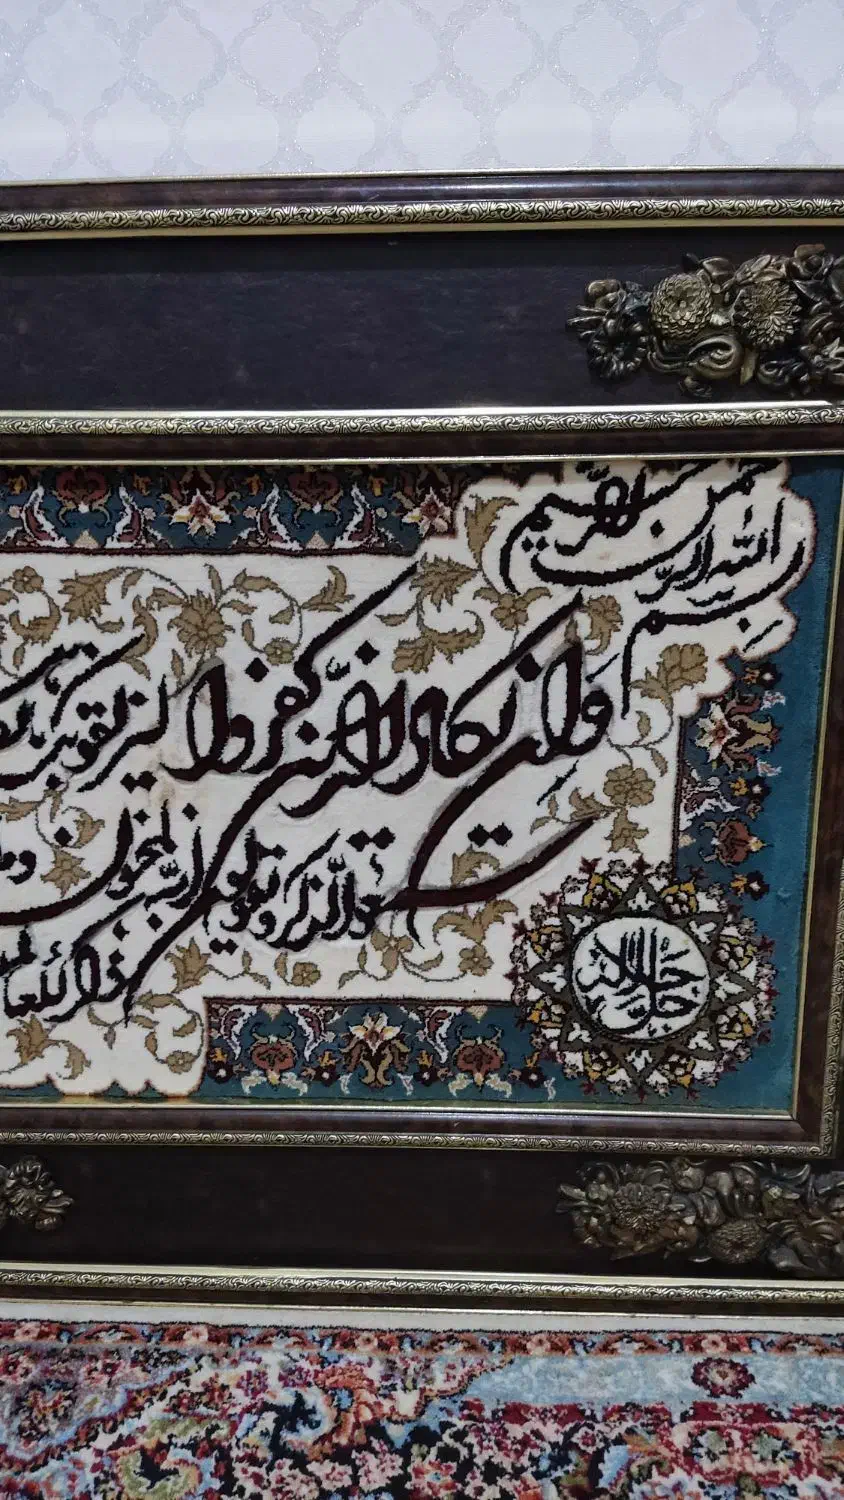 بسم الله الرحمن الرحيم
وان يكاد الذين كفروا ليزلقونك
لما سمعوا الذكر ويقولون انه لمجنون وما
ذكر للعالمين
الله جل جلاله